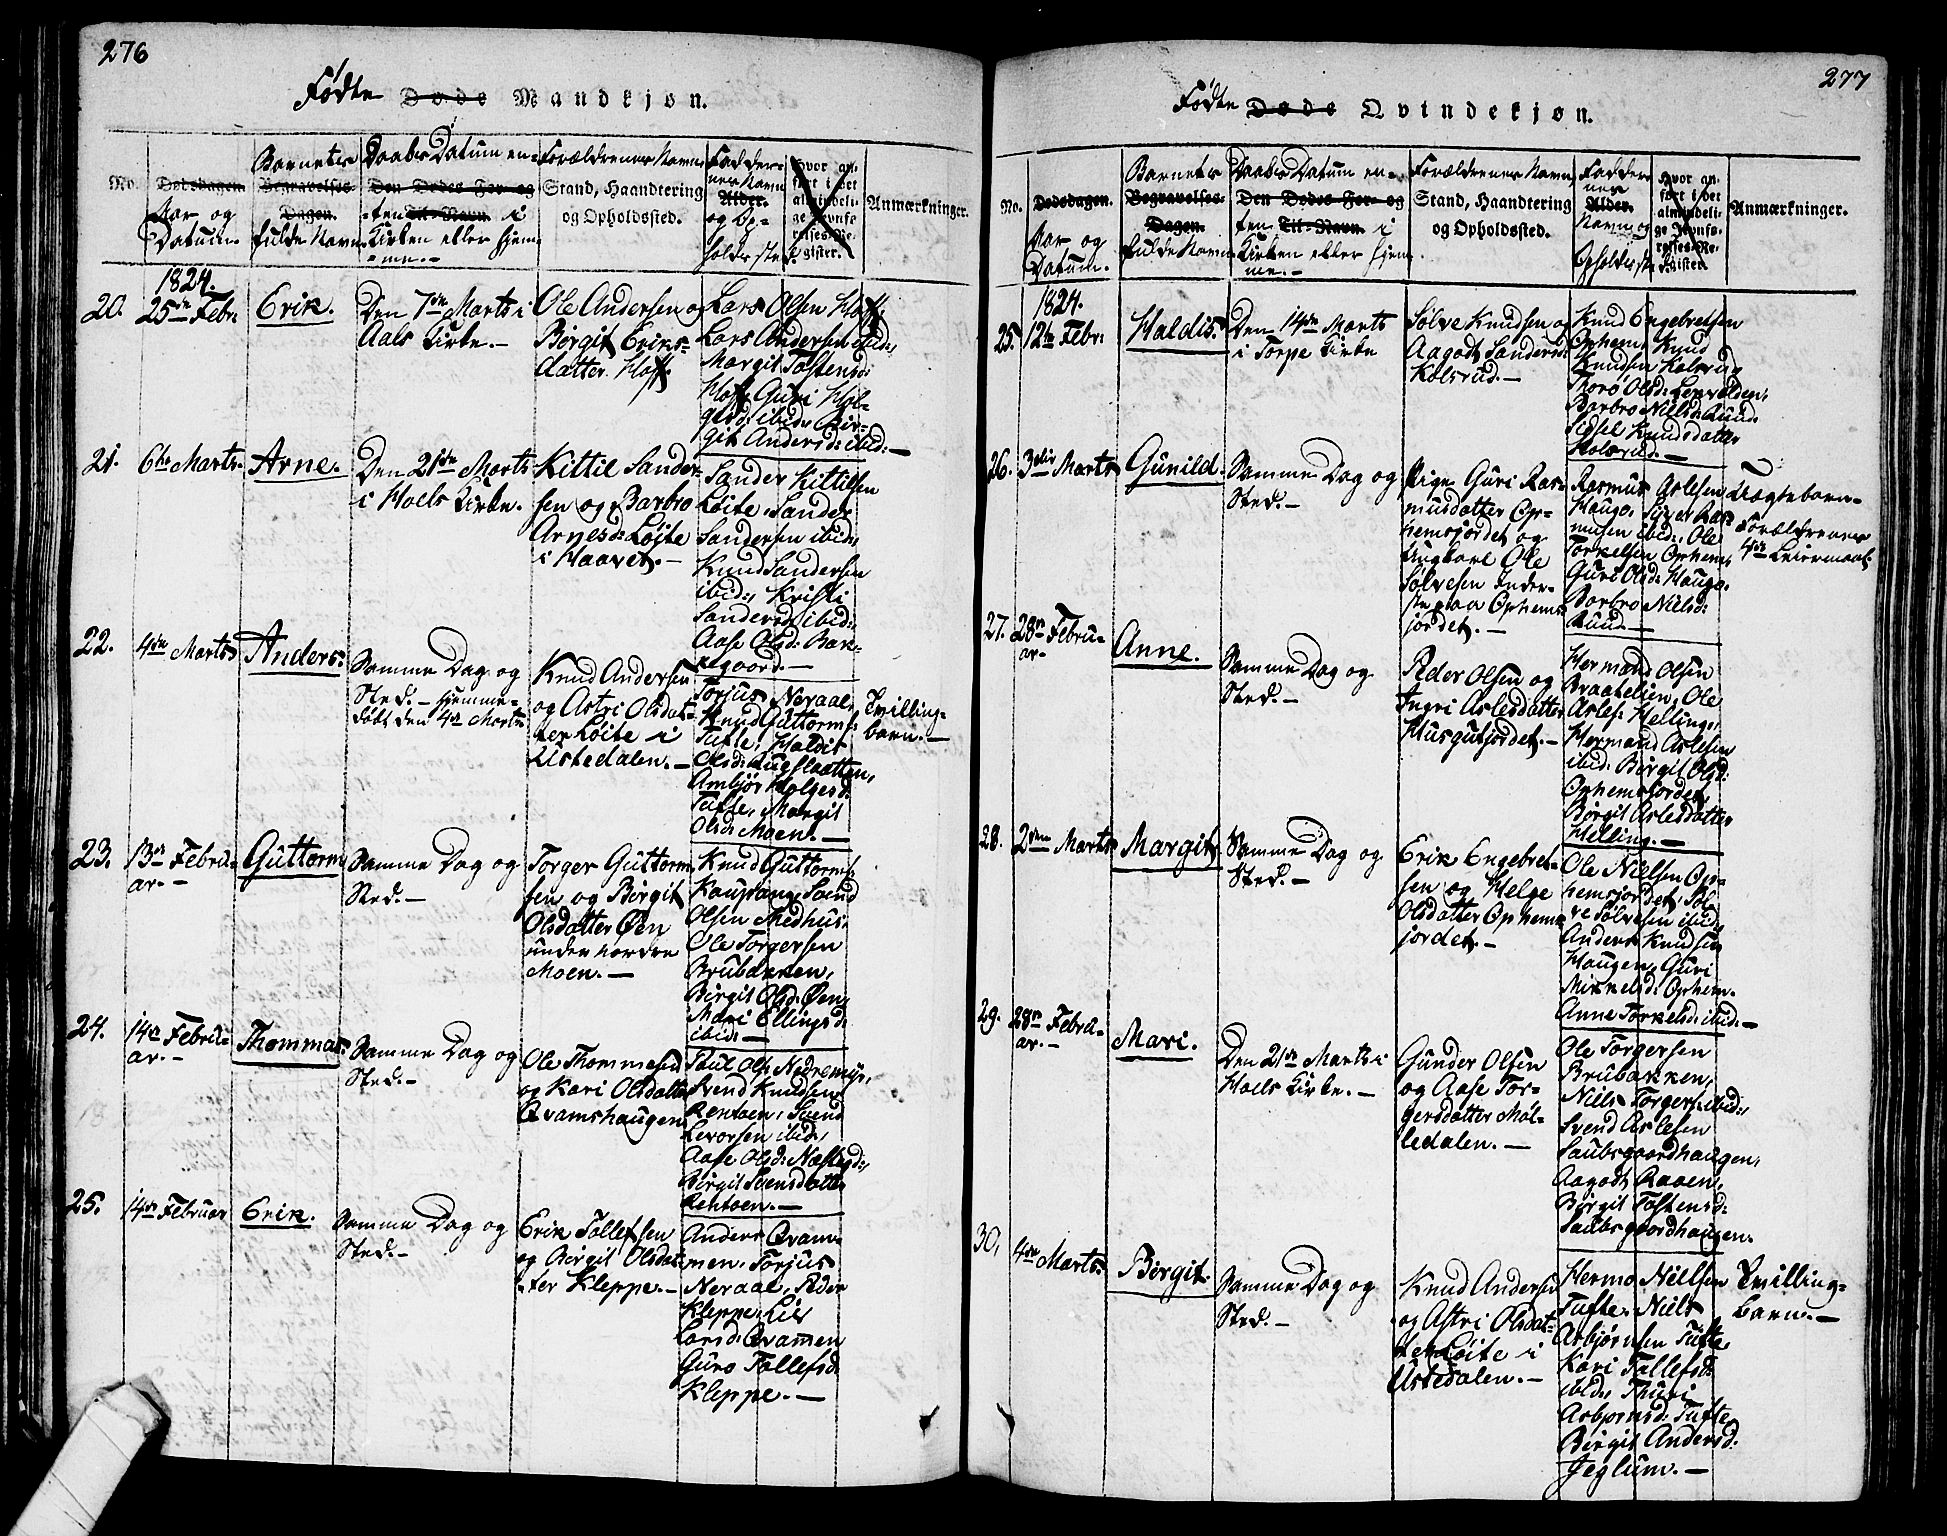 276
Fødte Døde Mandkjøn.
No.
Dødsdagen.
Aar og
Datum.
Barnets
Begravelses-
Dagen.
fulde Navn
Daabs Datum en-
Den Dødes For- og
-ten Til-Navn i
Kirken eller hjem-
me.-
Forældrenes Navn
Stand, Haandtering
og Opholdssted.
Fadder-
nes Navn
Alder.
og Op-
holdssted.
Hvor an-
ført i det
almindeli-
ge Jevnfø-
relses-Re-
gister.
Anmærkninger.
1824.
20.
25de Febr:
Erik.
Den 7de Marts i
Aals Kirke.-
Ole Andersen og
Birgit Eriks-
datter Hoff.
Lars Olsen Hoff,
Lars Andersen ibid:,
Margit Tostensd:
Hoff, Guri Hol-
gesd: ibid:, Bir-
git Andersd: ibid:-
21.
6te Marts.
Arne.
Den 21de Marts
i Hols Kirke.
Kittil Sander-
sen og Barbro
Arnesd: Løite
i Haavet.-
Sander Kittilsen
Løite, Sander
Sandersen ibid:,
Knud Sandersen
ibid:, Kristi
Sandersd: ibid:,
Aase Olsd: Bak-
kegaard.-
22.
4de Marts
Anders.
Samme Dag og
Sted.- hjemme-
døbt den 4de Marts
Knud Andersen
og Astri Olsdat-
ter Løite i
Ustedalen.-
Torjus Neraal,
Knud Guttorms:
Tufte, Haldis
Olsd:
Ambjør Holgesd:
Tufte, Margit
Olsd: Moen.-
Tvilling-
barn.-
23.
13de Febru-
ar.-
Guttorm
Samme Dag og
Sted.-
Torger Guttorm-
sen og Birgit
Olsdatter Øen
under nordre
Moen.-
Knud Guttorms:
Kaupang, Svend
Olsen Medhus,
Ole Torgersen
Brubakken,
Birgit Olsd: Øen,
Mari Ellingsd:
ibid:-
24.
14de Febru-
ar.-
Thommas.
Samme Dag og
Sted.-
Ole Thommesen
og Kari Olsdatter
Qvamshaugen
Poul Ols: Nedremyr,
Svend Knudsen
Rentoen, Svend
Levorsen ibid:,
Aase Olsd: Næstegd:,
Birgit Svensdatter
Rentoen.-
25.
14de Februar
Erik.
Samme Dag og
Sted.-
Erik Tollefsen
og Birgit Olsdat-
ter Kleppe.-
Anders Qvam-
men, Torjus
Neraal, Peder
Kleppe, Liv
Larsd: Qvammen
Guro Tollefsd:
Kleppe.-
277
Fødte Døde Qvindekjøn.
No.
Dødsdagen.
Aar og
Datum.
Barnets
Begravelses-
Dagen.
fulde Navn
Daabs Datum en-
Den Dødes For- og
ten Til-Navn i
Kirken eller hjem-
me.-
Forældrenes Navn,
Stand, Haandtering
og Opholdssted.
Fadder-
nes
Alder.
Navn og
Opholdsste
Hvor an-
ført i det
almindeli-
ge Jevnfø-
relses-Re-
gister.
Anmærkninger.
1824.
25.
12te Febr:
Haldis.
Den 14de Marts
i Torpe Kirke
Sølve Knudsen og
Aagodt Sandersd:
Kolsrud.-
Knud Engebretsen
Ophem, Knud
Knudsen Kolsrud
Thoro Olsd:
Barbro Nielsd: Ruud,
Sidsel Knudsdatter
Kolsrud.-
26.
3die Marts
Gunild.
Samme Dag og
Sted.-
Pige Guri Ras-
musdatter Op-
hemsjordet og
Ungkarl Ole
Sølvesen Inder-
ste paa Ophems-
jordet.-
Rasmus Aslesen
Haugo, Siver Ras-
musen ibid:, Ole
Torkelsen Ophem,
Guri Olsd: Haugo,
Barbro Nielsd:
Ruud.-
Uægtebarn-
Forældrenes
4de Leiermaal
27.
28de Febru-
ar.-
Anne.
Samme Dag og
Sted.-
Peder Olsen og
Ingri Aslesdatter
Husgutjordet.-
Hermand Olsen
Braatelien, Ole
Asles: Helling,
Hermand Aslesen
ibid:, Birgit Olsd:
Ophemsjordet,
Birgit Aslesdatter
Helling.-
28.
2den Marts
Margit
Samme Dag og
Sted.-
Erik Engebret-
sen og Helge
Olsdatter Ophems-
jordet.-
Ole Nielsen Op-
hemsjordet, Søl-
ve Sølvesen ibid:,
Anders Knudsen
Haugen, Guri
Mikkelsd: Ophem.
Anne Torkelsd: ibid:-
29.
28de Febru-
ar.-
Mari.
Den 21de Marts i
Hols Kirke.-
Gunder Olsen
og Aase Tor-
gersdatter Møl-
ledalen.-
Ole Torgersen
Brubakken,
Niels Torgers: ibid:,
Svend Aslesen
Saubsgaardhaugen,
Aagodt Raaen,
Birgit Tostensd:
Saubsgaardhaugen.
30.
4de Marts.
Birgit.
Samme Dag og
Sted.-
Knud Andersen
og Astri Olsdat-
ter Løite i
Ustedalen.-
Hermo Nielsen
Tufte, Niels
Asbjørnsen Tufte,
Kari Tollefsd:
ibid:, Thuri
Asbjørnsd: Tufte,
Birgit Andersd:
Jeglum.-
Tvilling-
barn.-